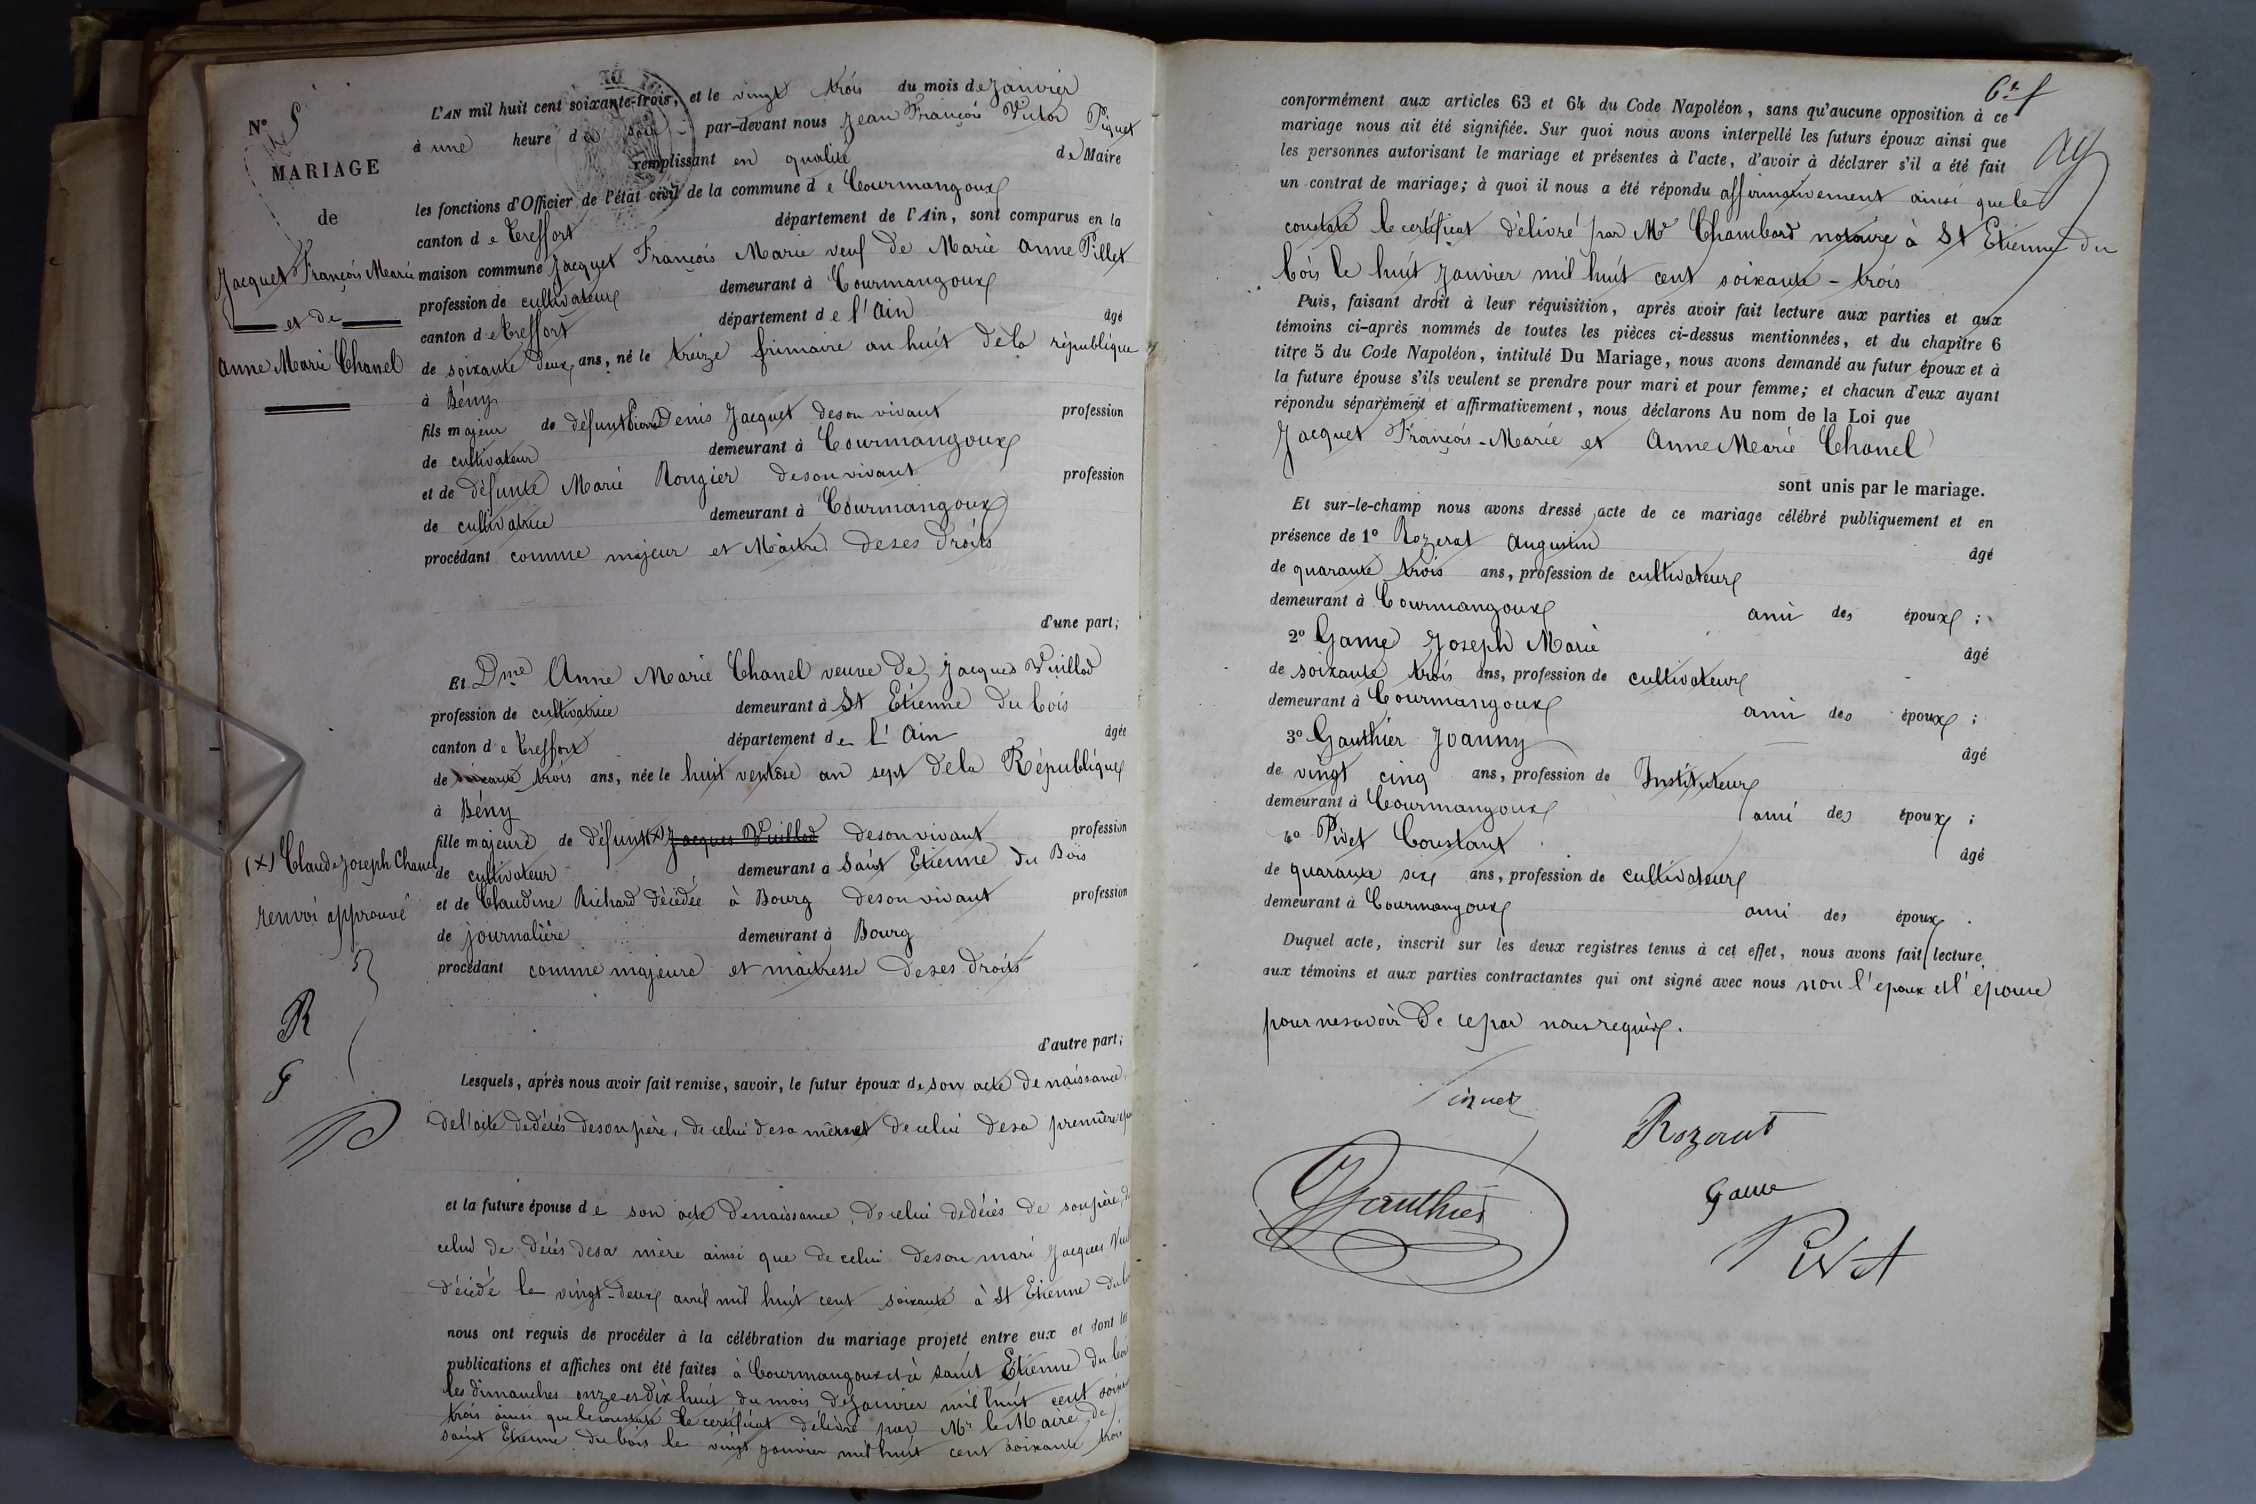 N° 5
MARIAGE
de
Jacquet François Marie
et de
Anne Marie Chanel
L'AN mil huit cent soixante-trois, et le vingt trois du mois de Janvier
à une heure du soir par-devant nous Jean François Victor Piquet
remplissant en qualité de Maire
les fonctions d'Officier de l'état civil de la commune de Courmangoux
canton de Treffort département de l'Ain, sont comparus en la
maison commune Jacquet François Marie veuf de Marie Anne Pillet
profession de cultivateur demeurant à Courmangoux
canton de Treffort département de l'Ain âgé
de soixante deux ans, né le treize frimaire an huit de la république
à Bény
fils majeur de défunt Denis Jacquet de son vivant profession
de cultivateur demeurant à Courmangoux
et de défunte Marie Rongier de son vivant profession
de cultivatrice demeurant à Courmangoux
procédant comme majeur et Maître de ses droits
d'une part;
Et Dme Anne Marie Chanel veuve de Jacques Vuillod
profession de cultivatrice demeurant à St Etienne du bois
canton de Treffort département de l'Ain âgée
de soixante trois ans, née le huit ventose an sept de la République
à Bény
fille majeure de défunt (x) Jacques Vuillod de son vivant profession
de cultivateur demeurant à Saint Etienne du Bois
et de Claudine Richard décédée à Bourg de son vivant profession
de journalière demeurant à Bourg
procédant comme majeure et maitresse de ses droits
(x) Claude Joseph Chanel
renvoi approuvé
R
G
P
d'autre part;
Lesquels, après nous avoir fait remise, savoir, le futur époux de son acte de naissance,
de l'acte de décès de son père, de celui de sa mère et de celui de sa première
et la future épouse de son acte de naissance, de celui de décès de son père, de
celui de décès de sa mère ainsi que de celui de son mari Jacques
décédé le vingt-deux avril mil huit cent soixante à St Etienne du
nous ont requis de procéder à la célébration du mariage projeté entre eux et dont les
publications et affiches ont été faites à Courmangoux et à saint Etienne du bois
les dimanches onze et dix huit du mois de Janvier mil huit cent
trois ainsi que le constate le certificat délivré par Mr le Maire de
saint Etienne du bois le vingt janvier mil huit cent soixante trois
6e f
conformément aux articles 63 et 64 du Code Napoléon, sans qu'aucune opposition à ce
mariage nous ait été signifiée. Sur quoi nous avons interpellé les futurs époux ainsi que
les personnes autorisant le mariage et présentes à l'acte, d'avoir à déclarer s'il a été fait
un contrat de mariage; à quoi il nous a été répondu affirmativement ainsi que le
constate le certificat délivré par Mr Chambard notaire à St Etienne du
bois le huit janvier mil huit cent soixante-trois
Puis, faisant droit à leur réquisition, après avoir fait lecture aux parties et aux
témoins ci-après nommés de toutes les pièces ci-dessus mentionnées, et du chapitre 6
titre 5 du Code Napoléon, intitulé Du Mariage, nous avons demandé au futur époux et à
la future épouse s'ils veulent se prendre pour mari et pour femme; et chacun d'eux ayant
répondu séparément et affirmativement, nous déclarons Au nom de la Loi que
Jacquet François-Marie et Anne Marie Chanel
sont unis par le mariage.
Et sur-le-champ nous avons dressé acte de ce mariage célébré publiquement et en
présence de 1° Rozerat Augustin âgé
de quarante trois ans, profession de cultivateur
demeurant à Courmangoux ami des époux;
2° Game Joseph Marie âgé
de soixante trois ans, profession de cultivateur
demeurant à Courmangoux ami des époux;
3° Gauthier Joanny âgé
de vingt cinq ans, profession de Instituteur
demeurant à Courmangoux ami des époux;
4° Pivet Constant âgé
de quarante six ans, profession de cultivateur
demeurant à Courmangoux ami des époux.
Duquel acte, inscrit sur les deux registres tenus à cet effet, nous avons fait lecture
aux témoins et aux parties contractantes qui ont signé avec nous non l'époux et l'épouse
pour ne savoir de ce par nous requis.
Piquet
Rozerat
Gauthier
Game
Pivet